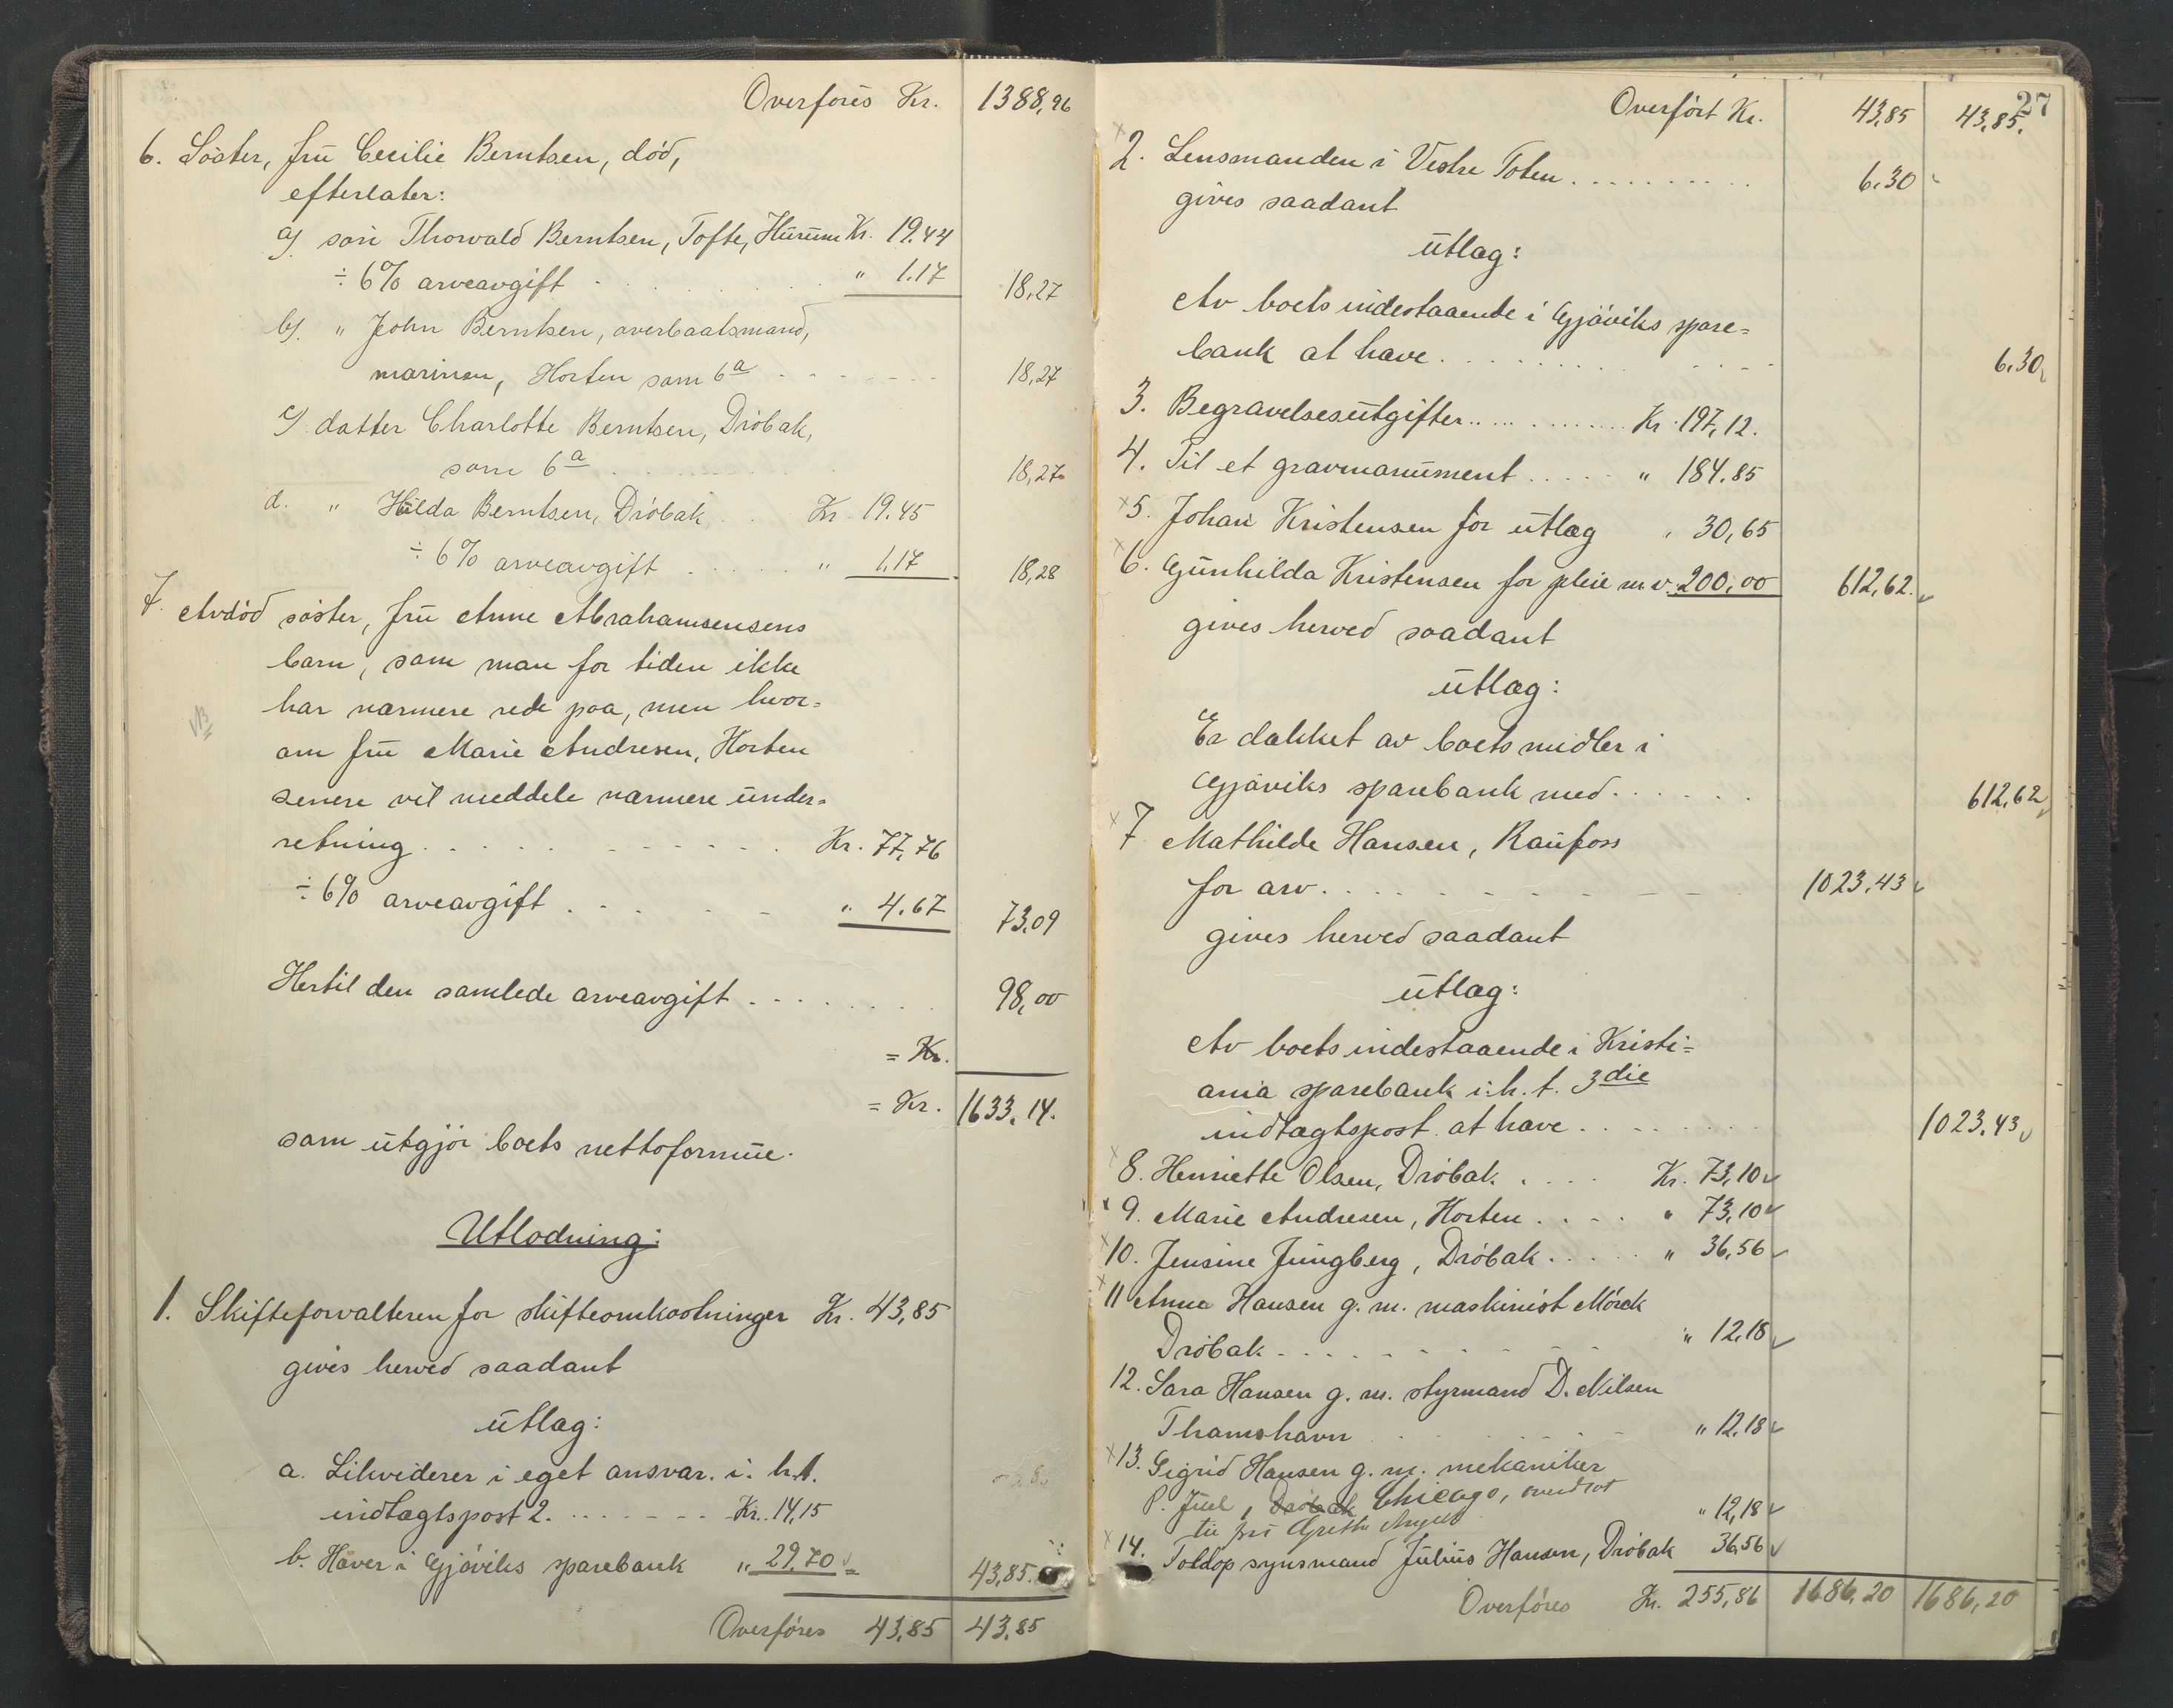 Overføres Kr. 1388,96
6. Søster, fru Cecilie Berntsen, död,
efterlater:
a) søn Thorvald Berntsen, Tofte, Hurum Kr. 19.44
÷ 6% arveavgift . . . . . " 1.17 18,27
b) " John Berntsen, overbaatsmand,
marinen, Horten som 6a . . . . 18,27
c) datter Charlotte Berntsen, Dröbak,
som 6a . . . . . 18,27
d. " Hilda Berntsen, Dröbak . . Kr. 19.45
÷ 6% arveavgift . . . . . " 1.17 18,28
7. Avdöd søster, fru Anne Abrahamsensens
barn, som man for tiden ikke
har nærmere rede paa, men hvor=
om fru Marie Andresen, Horten
senere vil meddele nærmere under=
retning . . . . . . . Kr. 77,76
÷ 6% arveavgift . . . . . " 4.67 73,09
Hertil den samlede arveavgift . . . . . 98,00
= Kr.
= Kr. 1633.14.
som utgjör boets nettoformue.
Utlodning:
1. Skifteforvalteren for skifteomkostninger Kr. 43,85
gives herved saadant
utlag:
a. Likviderer i eget ansvar. i. h.t.
indtægtspost 2. . . . . . . Kr. 14,15
b. Haver i Gjöviks sparebank " 29.70 43,85.
Overføres 43,85 43,85
27
Overført Kr. 43,85 43,85.
2. Lensmanden i Vestre Toten . . . . . . . . 6.30
gives saadant
utlag:
Av boets indestaaende i Gjöviks spare=
bank at have . . . . . . . . . . 6.30
3. Begravelsesutgifter . . . . . . . Kr. 197,12.
4. Til et gravmonument . . . . . " 184.85
5. Johan Kristensen for utlæg " 30,65
6. Gunhilda Kristensen for pleie m.v. 200,00 612,62.
gives herved saadant
utlæg:
Er dækket av boets midler i
Gjøviks sparebank med . . . . . . 612,62
7 Mathilde Hansen, Raufoss
for arv . . . . . . . . . 1023,43
gives herved saadant
utlæg:
Av boets indestaaende i Kristi=
ania sparebank i. h. t. 3die
indtægtspost at have . . . . . . . 1023,43
8. Henriette Olsen, Dröbak . . . . Kr. 73,10
9. Marie Andresen, Horten . . . . " 73,10
10. Jensine Jungberg, Dröbak . . . . " 36,56
11 Anna Hansen g. m. maskinist Mörck
Dröbak . . . . . . . . . " 12,18
12. Sara Hansen g. m. styrmand D. Nilsen
Thamshavn . . . . . . . " 12,18
13. Sigrid Hansen g. m. mekaniker
P. Juel, Dröbak Chicago, " 12,18
til fru
14. Toldopsynsmand Julius Hansen, Dröbak 36,56
Overføres Kr. 255,86 1686,20 1686,20